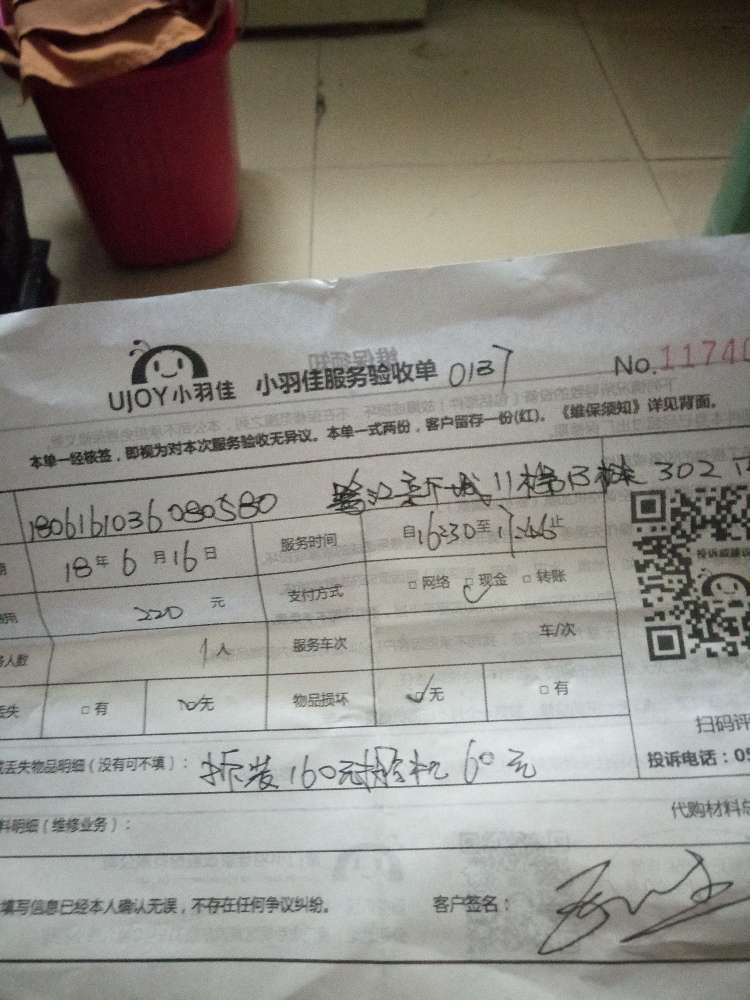 UJOY小羽佳 小羽佳服务验收单 0137 No.11740
本单一经核签，即视为对本次服务验收无异议。本单一式两份，客户留存一份(红)。《维保须知》详见背面。
1806161036080580 新城11 302
18年6月16日 服务时间 自16:30至17:46止
220元 支付方式 □网络 □现金 □转账
人数 1人 服务车次 车/次
丢失 □有 □无 物品损坏 □无 □有
扫码评
丢失物品明细（没有可不填）： 拆装160元 60元
投诉电话：05
料明细（维修业务）： 代购材料总
填写信息已经本人确认无误，不存在任何争议纠纷。 客户签名：